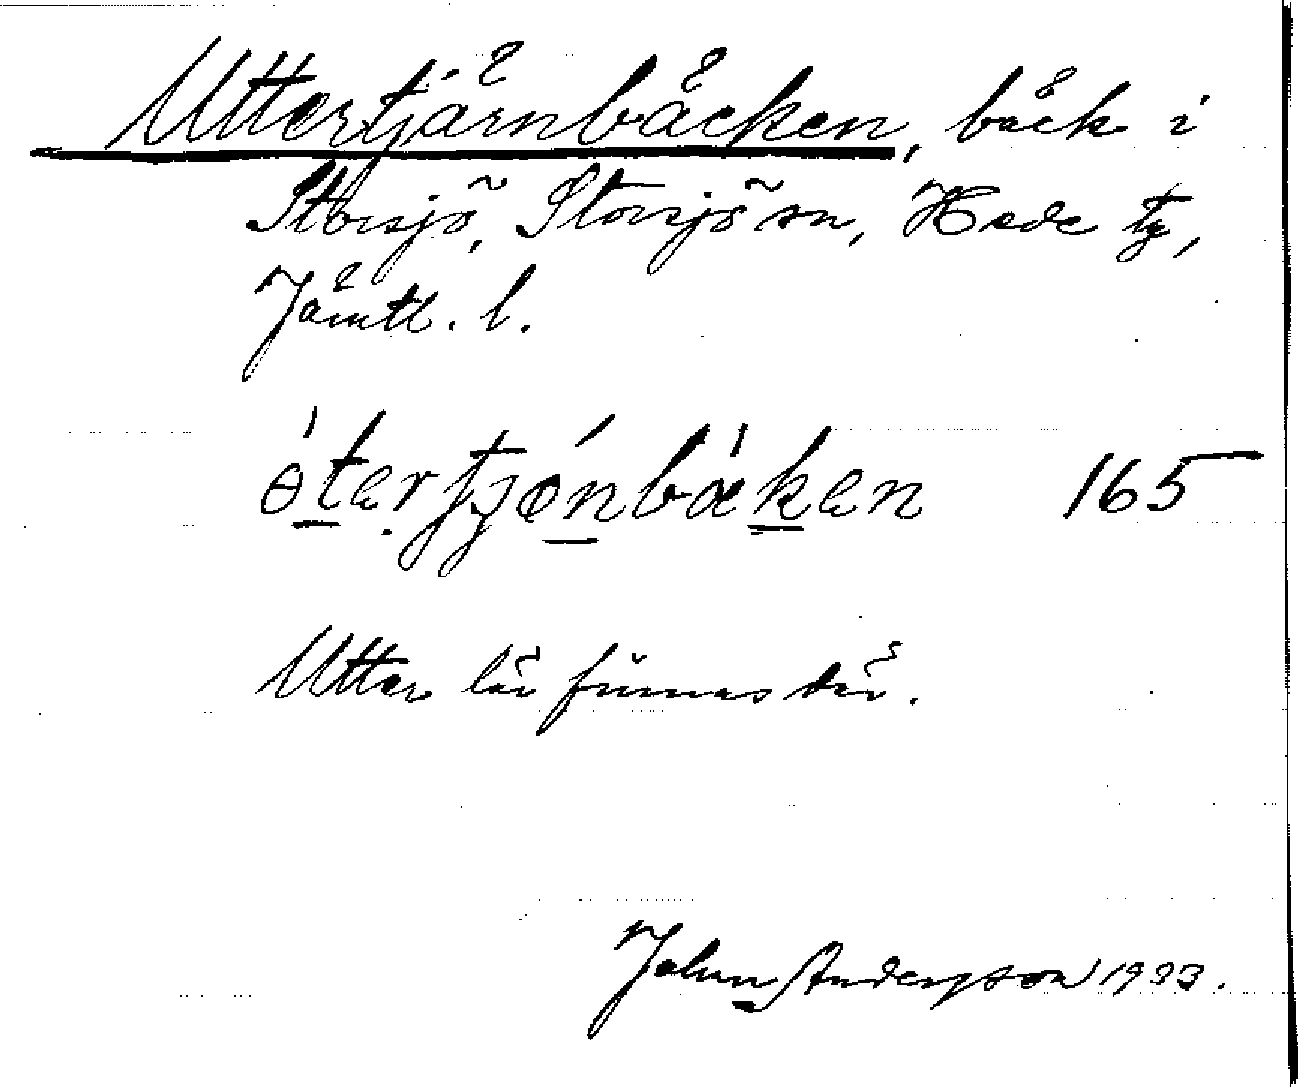 Uttertjärnbäcken, bäck i
Storsjö, Storsjö sn, Hede tg,
Jämtl. l.
ɵ́terʃtjɵ́nbǽken 165
Utter lär finnas där.
John Andersson 1933.